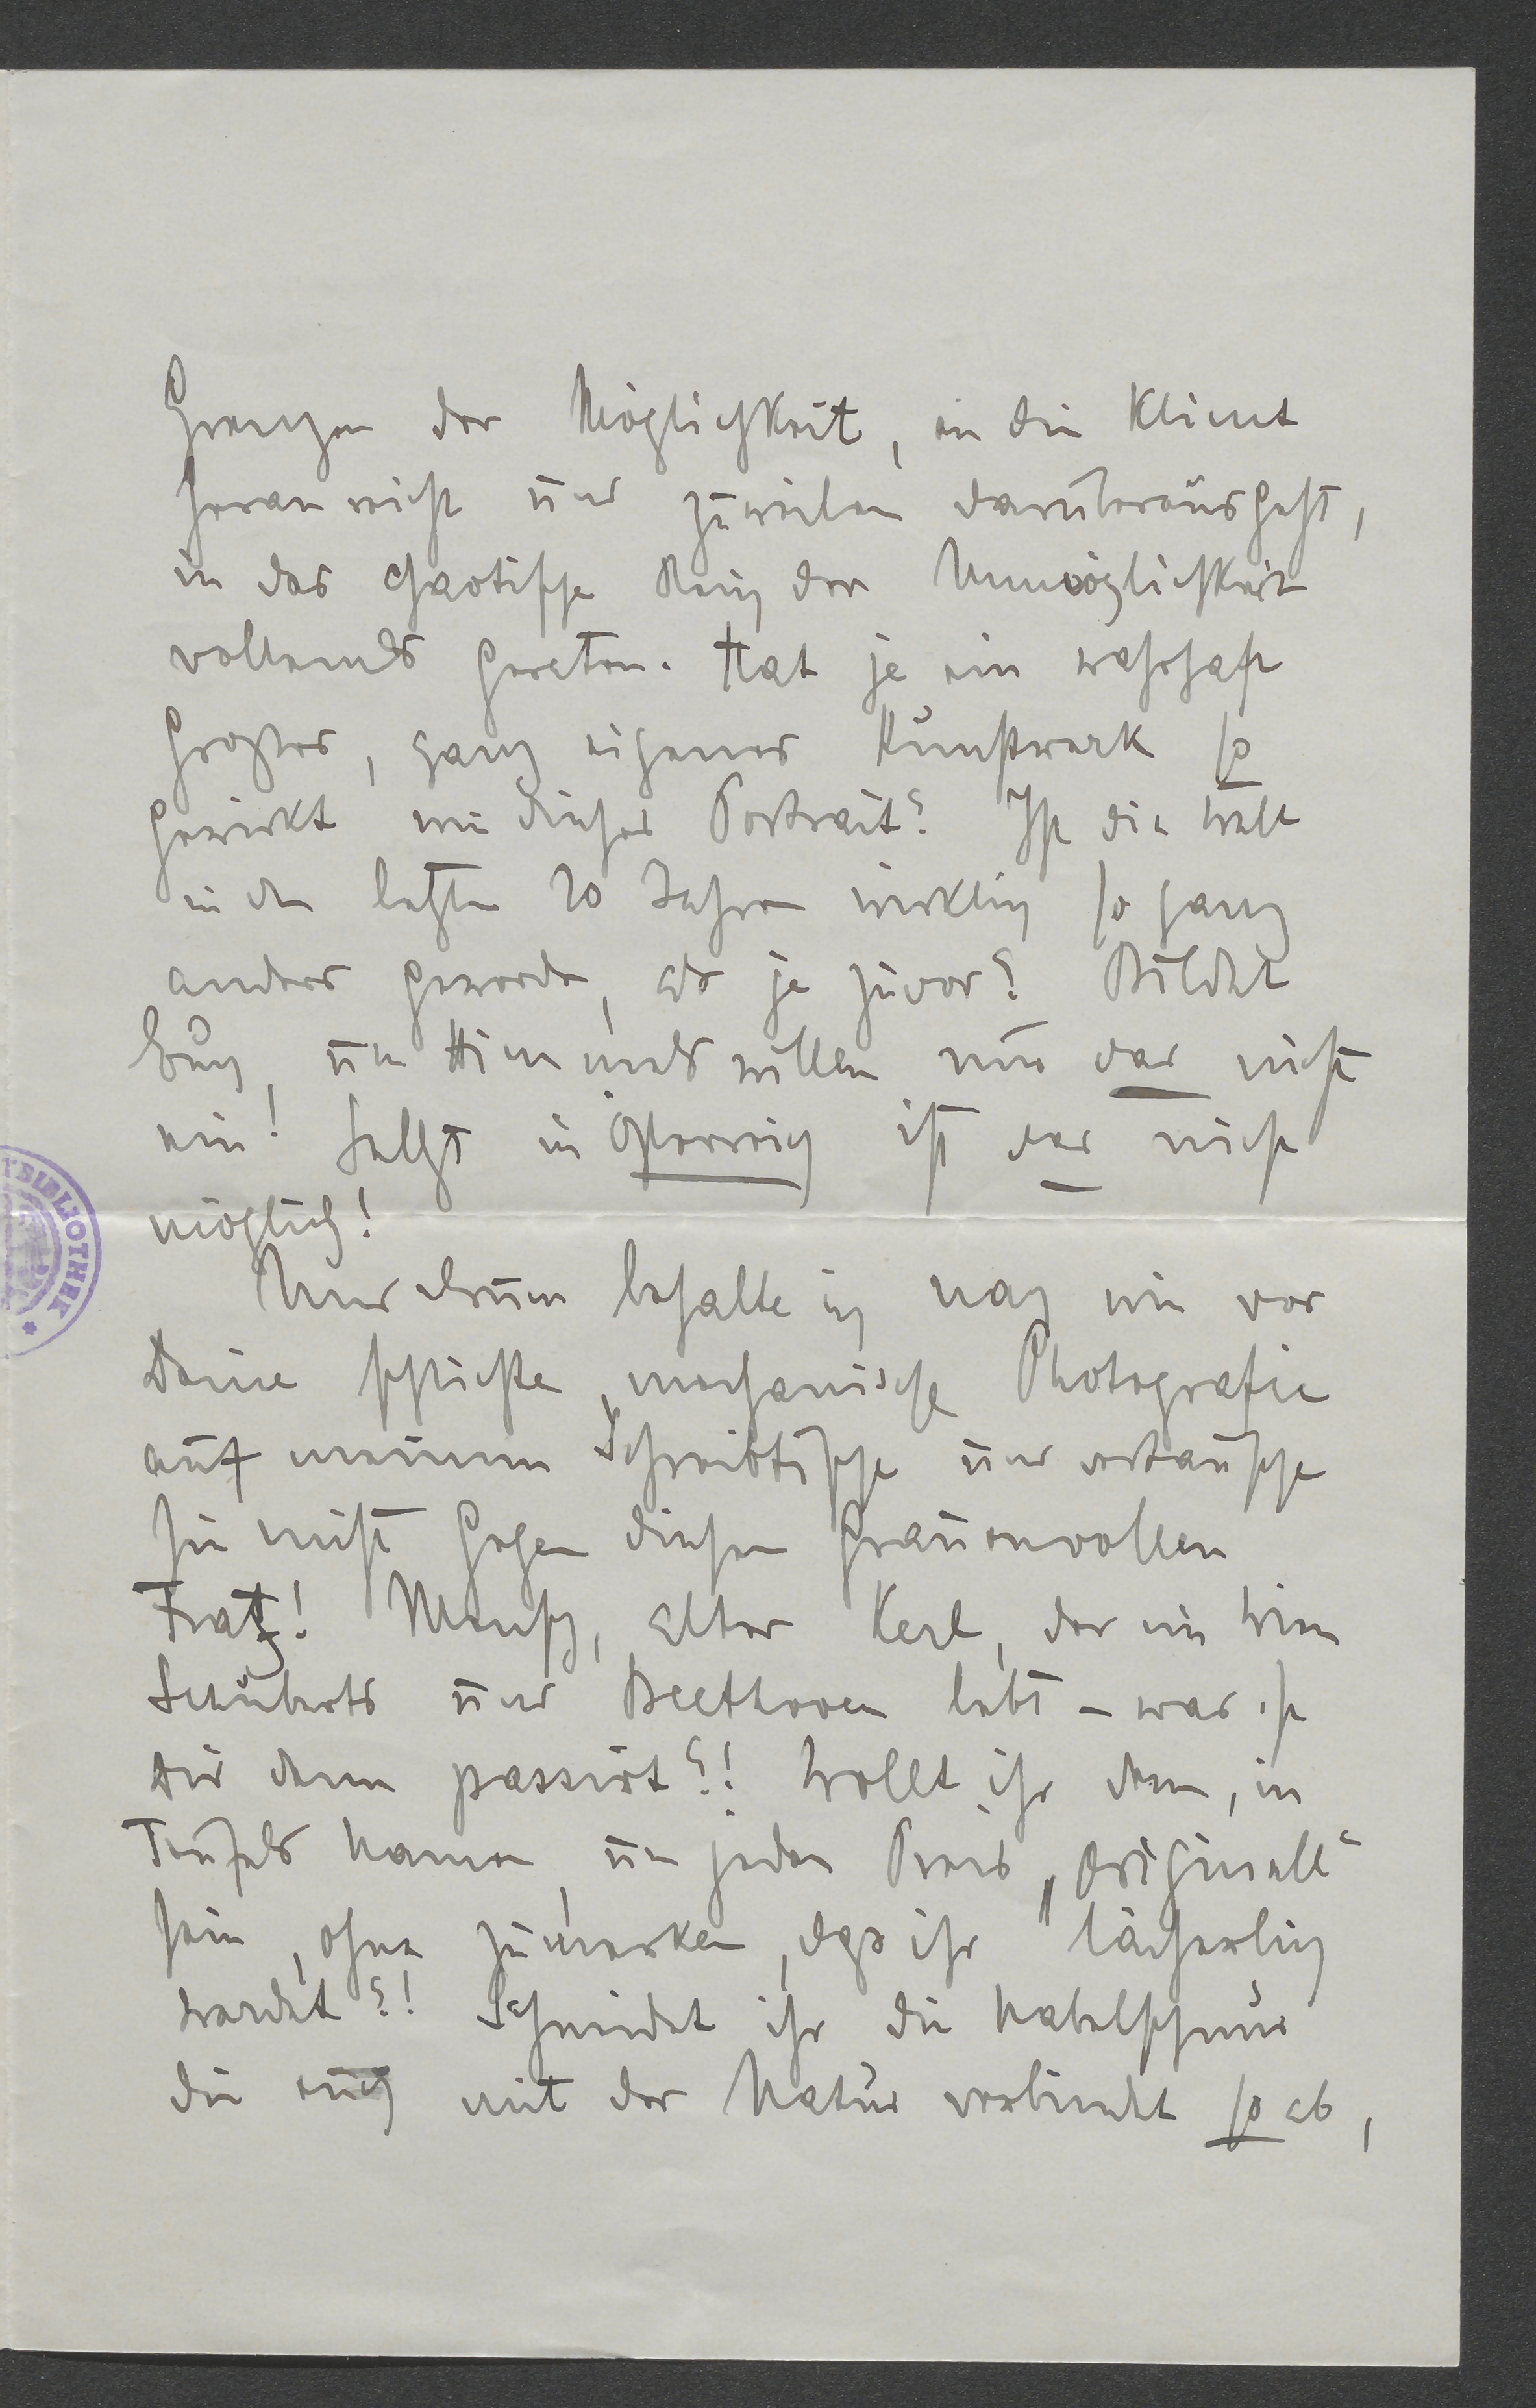 Grenzen der Möglichkeit, an die Klimt
heranreicht und zuweilen darüberausgeht,
in das chaotische Reich der Unmöglichkeit
vollends geraten. Hat je ein wahrhaft
Großes, ganz eigenes Kunstwerk so
gewirkt wie dieses Portrait? Ist die Welt
in den letzten 20 Jahren wirklich so ganz
anders geworden, als je zuvor? Bildet
Euch, um Himmels willen nur das nicht
ein! Selbst in Österreich ist das nicht
möglich!
Und drum behalte ich nach wie vor
Deine schlichte, mechanische Photografie
auf meinem Schreibtische und vertausche
sie nicht gegen diesen grauenvollen
Fratz! Mensch, alter Kerl, der im Wien
Schuberts und Beethoven lebt – was ist
Dir denn passirt?! Wollt ihr denn, in
Teufels Namen, um jeden Preis „originell“
sein, ohne zu merken, dass ihr lächerlich
werdet?! Schneidet ihr die Nabelschnur
die euch mit der Natur verbindet so ab,
TBIBLIOTHEK